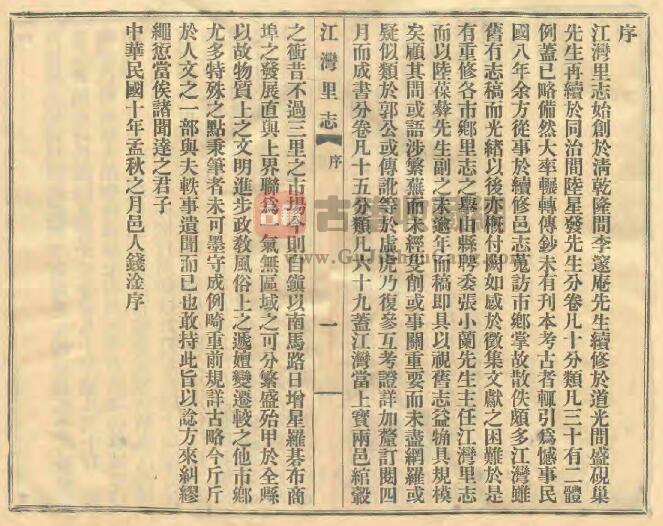 序
江灣里志始創於清乾隆間李邃庵先生續修於道光間盛硯巢
先生再續於同治間陸星發先生分卷凡十分類凡三十有二體
例蓋已略備然大率輾轉傳鈔未有刊本考古者輒引爲憾事民
國八年余方從事於續修邑志蒐訪市鄉掌故散佚頗多江灣雖
舊有志稿而光緒以後亦概付闕如感於徵集文獻之困難於是
有重修各市鄉里志之舉由縣聘委張小蘭先生主任江灣里志
而以陸葆彝先生副之未逾年而稿即具以視舊志益觕具規模
矣顧其間或語涉繁蕪而未經芟創或事關重要而未盡網羅或
疑似類於郭公或傳訛等於虛虎乃復參互考證詳加釐訂閱四
月而成書分卷凡十五分類凡六十九蓋江灣當上寶兩邑綰轂
江灣里志 序 一
之衝昔不過三里之市場今則自鎭以南馬路日增星羅碁布商
埠之發展直與上界聯爲一氣無區域之可分繁盛殆甲於全縣
以故物質上之文明進步政教風俗上之遞嬗變遷較之他市鄉
尤多特殊之點秉筆者未可墨守成例崎重前規詳古略今斤斤
於人文之一部與夫軼事遺聞而已也敢持此旨以諗方來糾繆
繩愆當俟諸聞達之君子
中華民國十年孟秋之月邑人錢淦序
古籍
www.GuJiShuWang.com